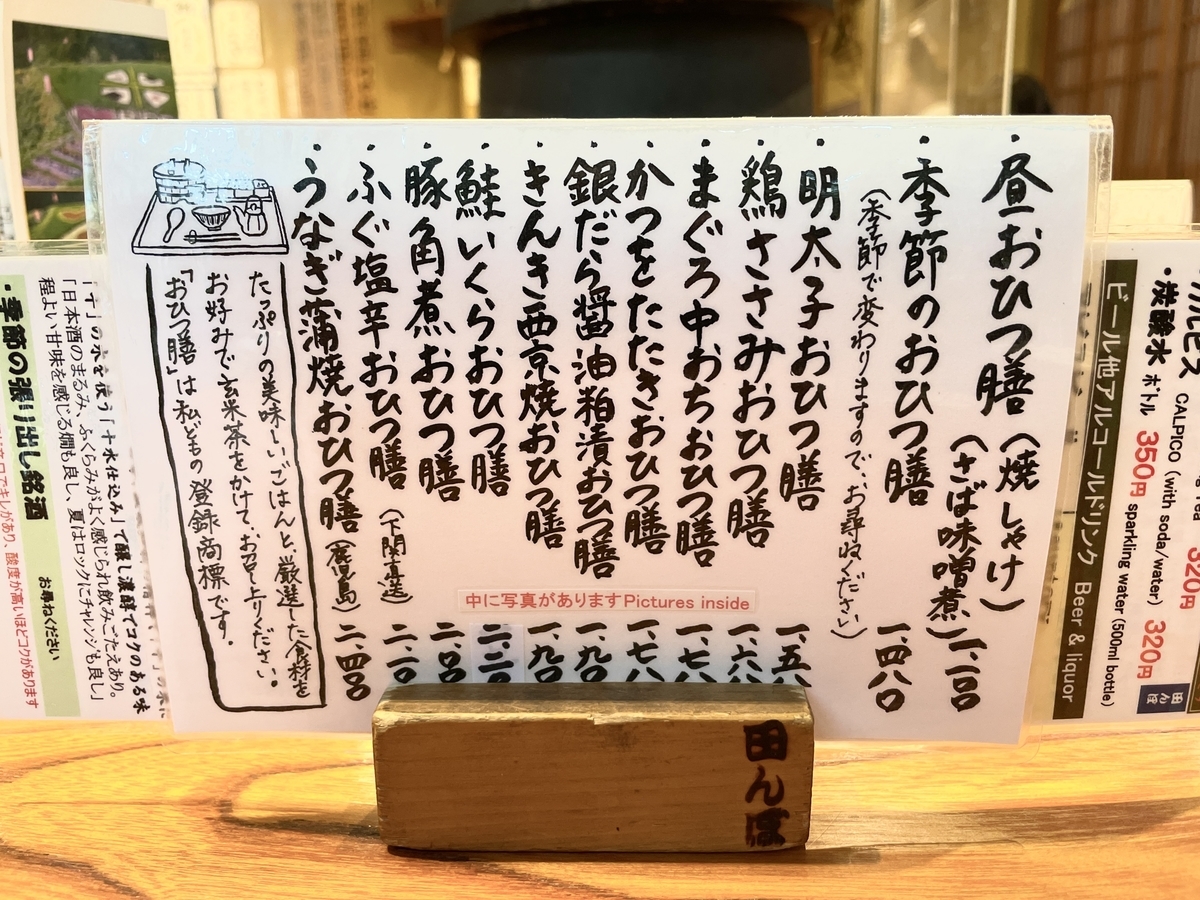 ・昼おひつ膳(焼しゃけ)
(さば味噌煮)二、一〇〇
・季節のおひつ膳 一、四八〇
(季節で変わりますので、お尋ねください)
・明太子おひつ膳 一、五八
・鶏ささみおひつ膳 一、六八
・まぐろ中おちおひつ膳 一、六八
・かつをたたきおひつ膳 一、七八
・銀だら醤油粕漬おひつ膳 一、九〇
・きんき西京焼おひつ膳 一、九〇
・鮭いくらおひつ膳 二、二〇
・豚角煮おひつ膳 二、〇
・ふぐ塩辛おひつ膳(下関直送) 二、一〇
・うなぎ蒲焼おひつ膳(鹿児島) 二、四〇〇
たっぷりの美味しいごはんと、厳選した食材を
お好みで玄米茶をかけて、お召し上りください。
「おひつ膳」は私どもの登録商標です。
中に写真がありますPictures inside
田んぼ
CALPICO (with soda/water) 320円
・炭酸水 ボトル 350円 sparkling water (500ml bottle)
田んぼ
ビール他アルコールドリンク Beer & liquor
「十水仕込み」で醸し濃醇でコクのある味
「日本酒のまるみ、ふくらみがよく感じられ飲みごたえあり。
程よい甘味を感じる燗も良し、夏はロックにチャレンジも良し」
・季節の張り出し銘酒 お尋ねください
キレがあり、酸度が高いほどコクがあります